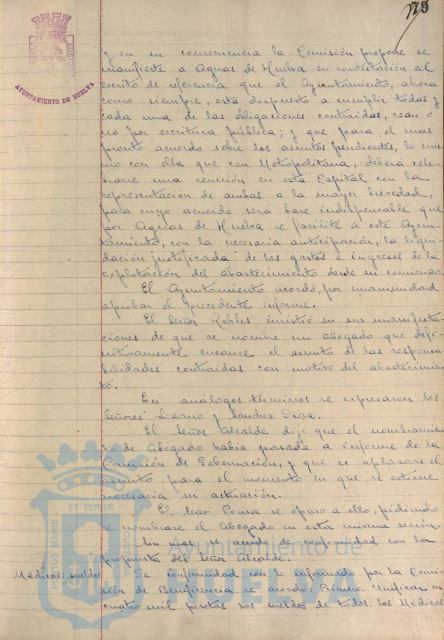 179
AYUNTAMIENTO DE HUELVA
y en su consecuencia la Comisión propone se
manifieste a Aguas de Huelva en contestación al
escrito de referencia que el Ayuntamiento, ahora
como siempre, está dispuesto a cumplir todas y
cada una de las obligaciones contraidas, sean o
no por escritura pública; y que para el mas
pronto acuerdo sobre los asuntos pendientes, lo mis-
mo con ella que con Metropolitana, deberá cele-
brarse una reunión en esta Capital con la
representación de ambas a la mayor brevedad,
para cuyo acuerdo será base indispensable que
por Aguas de Huelva se facilite a este Ayun-
tamiento, con la necesaria anticipación, la liqui-
dación justificada de los gastos e ingresos de la
explotación del abastecimiento desde su comienzo.
El Ayuntamiento acordó, por unanimidad
aprobar el precedente informe.
El Señor Robles insistió en sus manifesta-
ciones de que se nombre un abogado que defi-
nitivamente encauce el asunto de las responsa-
bilidades contraidas con motivo del abastecimien-
to.
En análogos términos se expresaron los
Señores Lozano y Sanchez Diaz.
El Señor Alcalde dijo que el nombramien-
to de Abogado habia pasado a informe de la
Comisión de Gobernación, y que se aplazase el
asunto para el momento en que se estime
necesaria su actuación.
El Señor Ponce se opuso a ello, pidiendo
se nombrase el Abogado en esta misma sesión.
Sin mas se acordó de conformidad con la
propuesta del Señor Alcalde.
Médicos: sueldos
De conformidad con lo informado por la Comi-
sión de Beneficencia se acordó: Primero. Unificar en
cuatro mil pesetas los sueldos de todos los Médicos
Ayuntamiento de
HUELVA